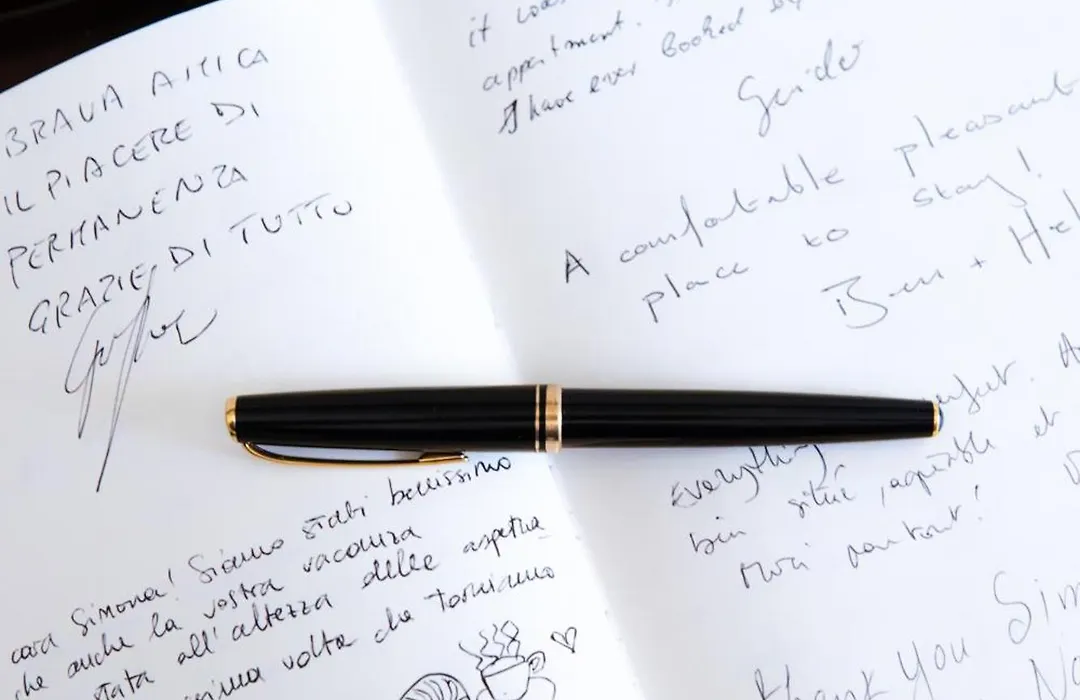 BRAVA AMICA
IL PIACERE DI
PERMANENZA
GRAZIE DI TUTTO
cara Simona! Siamo stati benissimo
che anche la vostra vacanza
stata all'altezza delle aspetta
volta che torniamo
it was
appartment.
I have ever booked
Guido
A comfortable pleasant
place to stay!
Ben +
Everything
bien situé, agréable et
Merci pour tout!
Thank You Sim